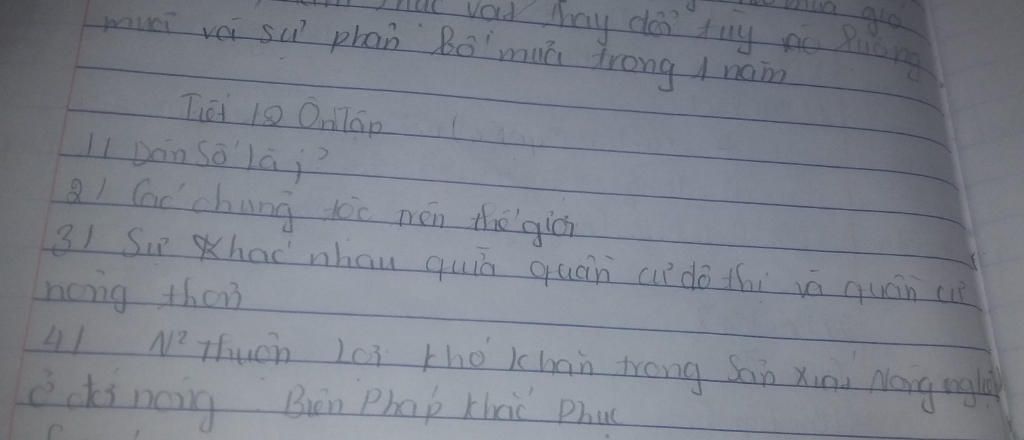 vật thay đổi tùy
mưa và sự phân bố mưa trong 1 năm
Tiết 12 Ôn Tập
1/ Dân Số là j?
2/ Các chủng tộc trên thế giới
3/ Sự khác nhau giữa quần cư đô thị và quần cư
nông thôn
4/ N² thuận lợi khó khăn trong Sản xuất Nông nghiệp
ở đới nóng Biện Pháp khắc Phục